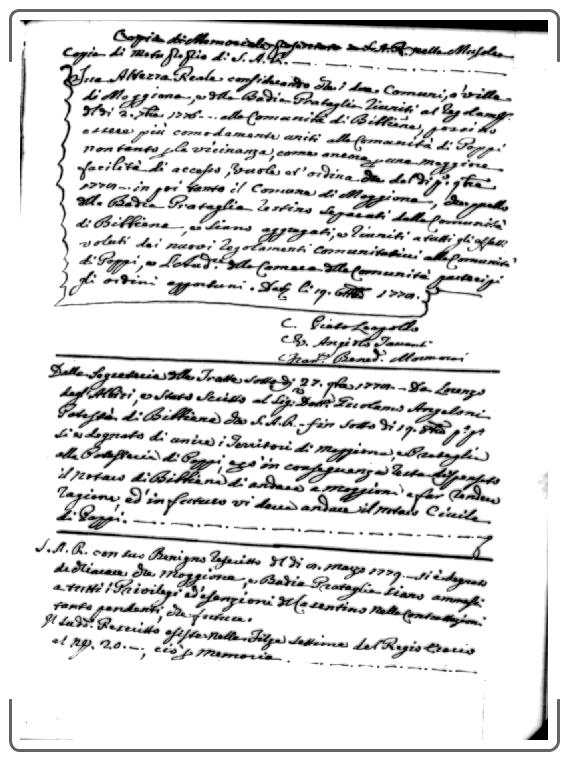 Copia di Memoriale presentato a S.A.R. nelle
Copia di Motuproprio di S.A.R.
Sua Altezza Reale considerando che i due Comuni, o ville
di Moggiona, e della Badia Prataglia riuniti al
del dì 2. 7bre 1776 alla Comunità di Bibbiena, possino
essere più comodamente uniti alla Comunità di Poppi
non tanto p. la vicinanza, come ancne p. una maggiore
facilità di accesso, vuole et ordina che dal dì p.º
1779 in poi tanto il Comune di Moggiona, che quello
della Badia Prataglia restino separati dalla Comunità
di Bibbiena, e siano aggregati, e riuniti a tutti gli effetti
voluti dai nuovi regolamenti Comunitativi alla Comunità
di Poppi, e la Camera delle Comunità partecipi
gli ordini opportuni. Dat. li 19. 8bre 1778.
C. Pietro Leopoldo
V. Angiolo Tavanti
Bened. Mormorai
Dalla Segreteria delle Tratte sotto dì 27. 9bre 1778 Da Lorenzo
degl'Albizi, e stato scritto al Sig. Dott. Girolamo Angeloni
Potestà di Bibbiena che S.A.R. fin sotto dì 19. 8bre p.º p.º
si è degnato di unire i Territori di Moggiona, e Prataglia
alla Potesteria di Poppi, in conseguenza resta dispensato
il notaro di Bibbiena di andare a Moggiona a far rendere
ragione ed in futuro vi deve andare il notaro Civile
di Poppi.
S.A.R. con suo Benigno rescritto del dì marzo 1779 si è degnato
dichiarare che Moggiona, e Badia Prataglia siano ammessi
a tutti i Privilegi ed esenzioni del Casentino nelle Contrattazioni
tanto pendenti, che future.
Il sudd. Rescritto esiste nelle Filze settime del Regio
al N.º 20, ciò p. memoria